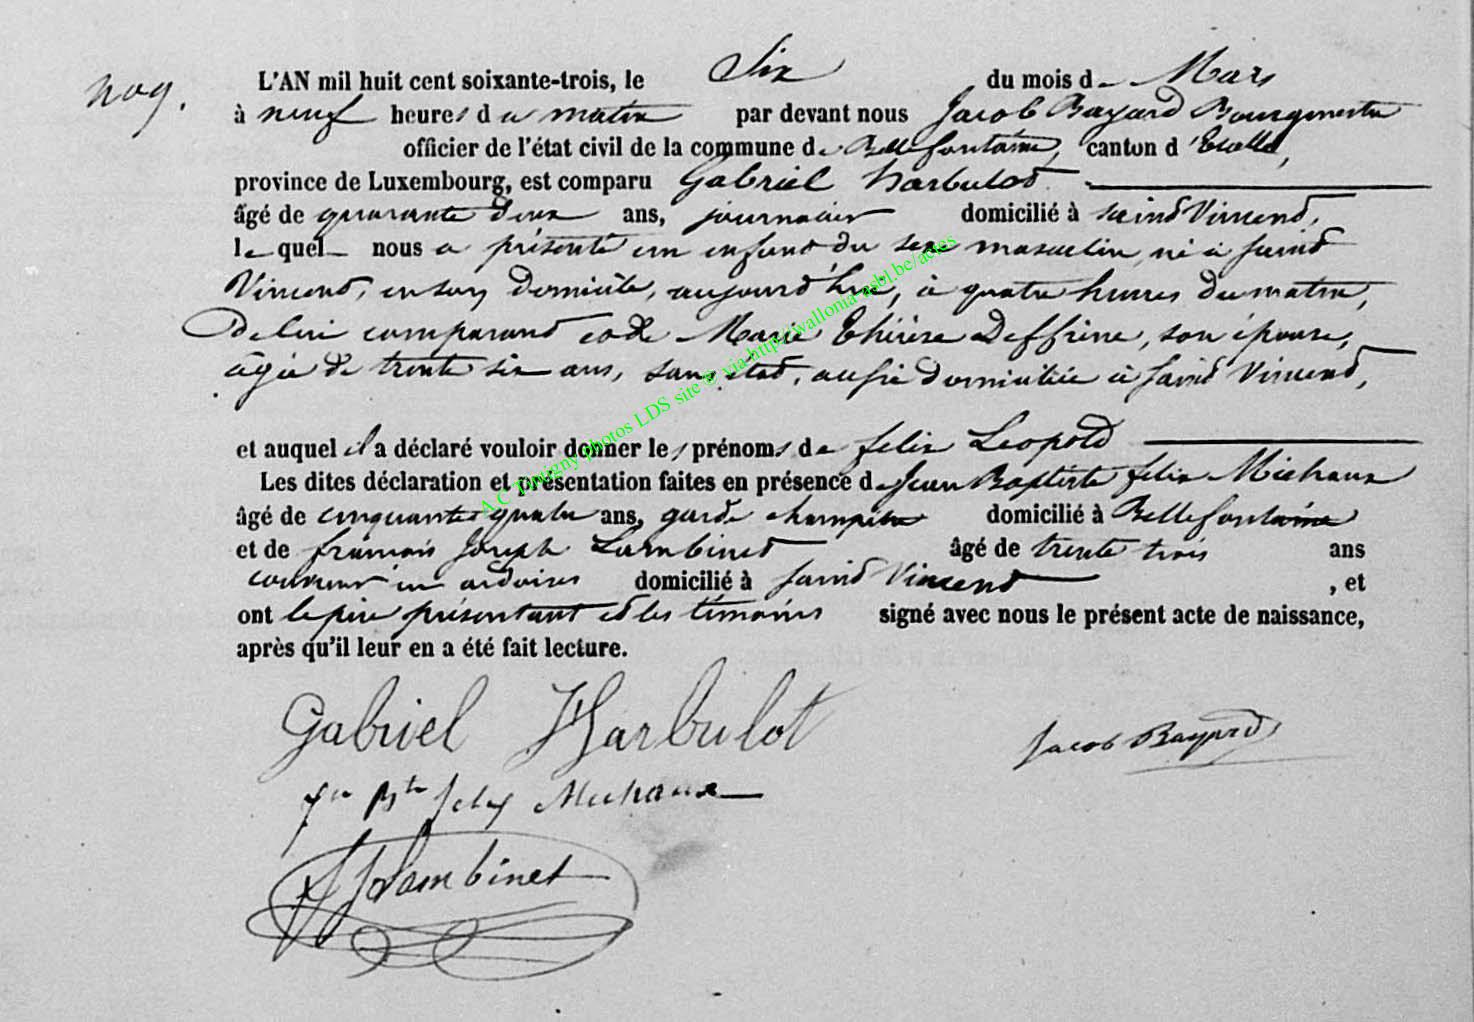 N° 9.
L'AN mil huit cent soixante-trois, le Six du mois de Mars
à neuf heures du matin par devant nous Jacob Bayard Bourgmestre
officier de l'état civil de la commune de Bellefontaine, canton d'Etalle,
province de Luxembourg, est comparu Gabriel harbulot
âgé de quarante deux ans, journalier domicilié à saint Vincent,
lequel nous a présenté un enfant du sexe masculin, né à saint
Vincent, en son domicile, aujourd'hui, à quatre heures du matin,
de lui comparant et de Marie thérèse Deffrine, son épouse,
âgée de trente six ans, sans état, aussi domiciliée à saint Vincent,
et auquel il a déclaré vouloir donner les prénoms de felix Leopold
Les dites déclaration et présentation faites en présence de Jean Baptiste felix Michaux
âgé de cinquante quatre ans, garde champêtre domicilié à Bellefontaine
et de françois Joseph Lambinet âgé de trente trois ans
couvreur en ardoises domicilié à saint Vincent, et
ont le père présentant et les témoins signé avec nous le présent acte de naissance,
après qu'il leur en a été fait lecture.
Gabriel Harbulot
Jacob Bayard
Jn Bte felix Michaux
FJ Lambinet
A.C Tintigny photos LDS site © via http://wallonia-asbl.be/actes